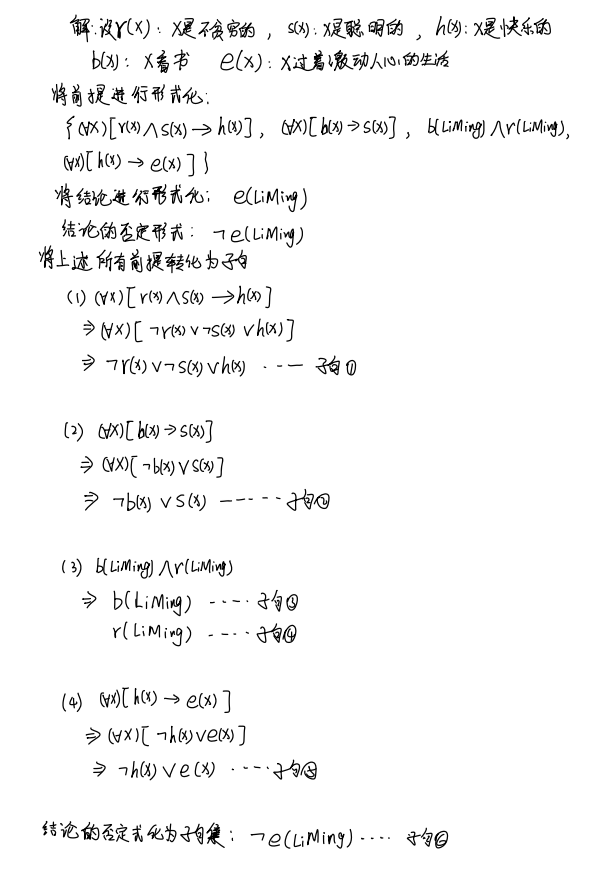 解:设r(x): x是不贫穷的, s(x): x是聪明的, h(x): x是快乐的
b(x): x看书 e(x): x过着激动人心的生活
将前提进行形式化:
{(∀x)[r(x)∧s(x)→h(x)], (∀x)[b(x)→s(x)], b(LiMing)∧r(LiMing),
(∀x)[h(x)→e(x)]}
将结论进行形式化: e(LiMing)
结论的否定形式: ¬e(LiMing)
将上述所有前提转化为子句
(1) (∀x)[r(x)∧s(x)→h(x)]
⇒(∀x)[¬r(x)∨¬s(x)∨h(x)]
⇒ ¬r(x)∨¬s(x)∨h(x) ···— 子句①
(2) (∀x)[b(x)→s(x)]
⇒(∀x)[¬b(x)∨s(x)]
⇒ ¬b(x)∨s(x) ------ 子句②
(3) b(LiMing)∧r(LiMing)
⇒ b(LiMing) ····· 子句③
r(LiMing) ····· 子句④
(4) (∀x)[h(x)→e(x)]
⇒(∀x)[¬h(x)∨e(x)]
⇒ ¬h(x)∨e(x) ····· 子句⑤
结论的否定式化为子句集: ¬e(LiMing) ····· 子句⑥